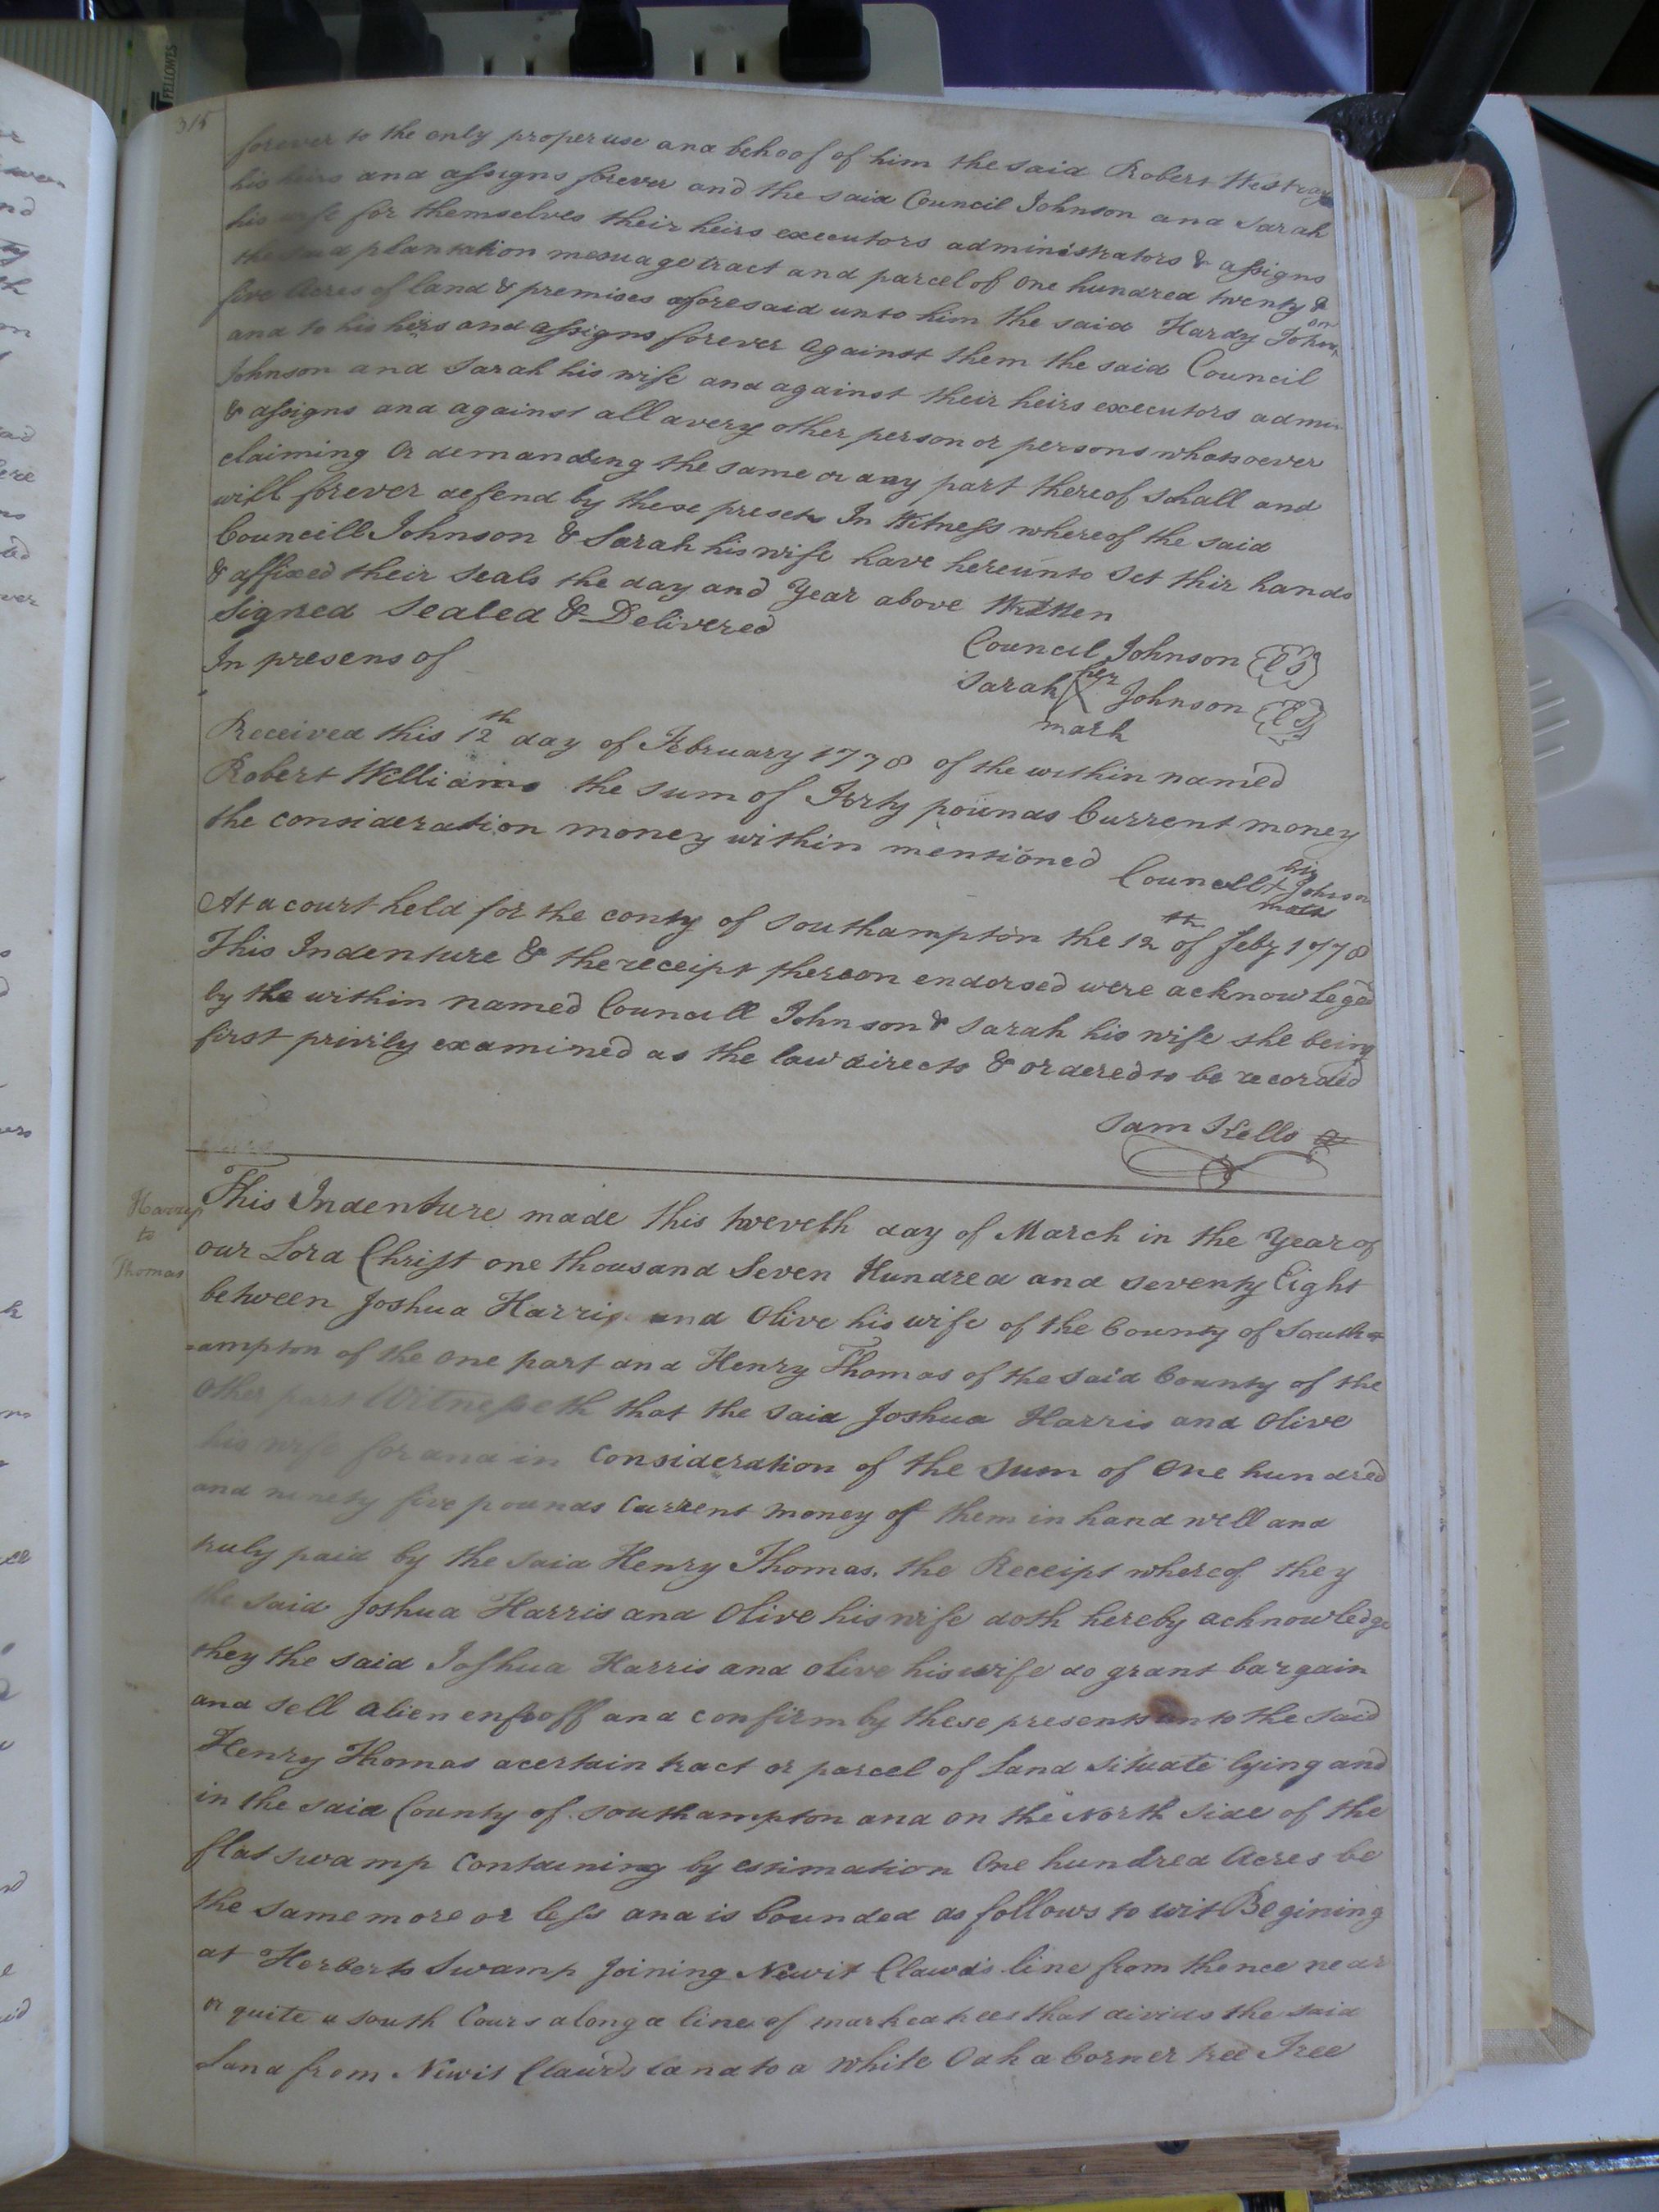 FELLOWES
315
forever to the only proper use and behoof of him the said Robert Westray
his heirs and assigns forever and the said Council Johnson and Sarah
his wife for themselves their heirs executors administrators & assigns
the said plantation mesuage tract and parcel of one hundred twenty &
five Acres of land & premises aforesaid unto him the said Hardy Johnson
and to his heirs and assigns forever against them the said Council
Johnson and Sarah his wife and against their heirs executors admin
& assigns and against all avery other person or persons whatsoever
claiming or demanding the same or any part thereof shall and
will forever defend by these presets In Witness whereof the said
Councill Johnson & Sarah his wife have hereunto set thir hands
& affixed their seals the day and Year above Written
Signed Sealed & Delivered
In presens of
Council Johnson (LS)
Sarah her X mark Johnson (LS)
Received this 12th day of February 1778 of the within named
Robert Williams the sum of Forty pounds Current money
the consideration money within mentioned
Councill his + mark Johnson
At a court held for the conty of Southampton the 12th of feby 1778
This Indenture & the receipt thereon endorsed were acknowleged
by the within named Councill Johnson & Sarah his wife she being
first privily examined as the law directs & ordered to be recorded
Sam Kello
Harris
to
Thomas
This Indenture made this tweveth day of March in the Year of
our Lord Christ one thousand Seven Hundred and seventy Eight
between Joshua Harris and Olive his wife of the County of South=
=ampton of the one part and Henry Thomas of the said County of the
Other part Witnesseth that the said Joshua Harris and Olive
his wife for and in Consideration of the Sum of One hundred
and ninety five pounds Current money of them in hand well and
truly paid by the said Henry Thomas, the Receipt whereof they
the said Joshua Harris and Olive his wife doth hereby acknowledge
they the said Joshua Harris and olive his wife do grant bargain
and sell alien enfeoff and confirm by these presents unto the said
Henry Thomas a certain tract or parcel of Land Situate lying and
in the said County of Southampton and on the North Side of the
flat swamp Containing by estimation One hundred Acres be
the same more or less and is bounded as follows to wit Begining
at Herberts Swamp Joining Newit Clawds line from thence near
or quite a south Cours along a line of markd trees that divids the said
Land from Newit Clawds land to a White Oak a Corner tree Tree